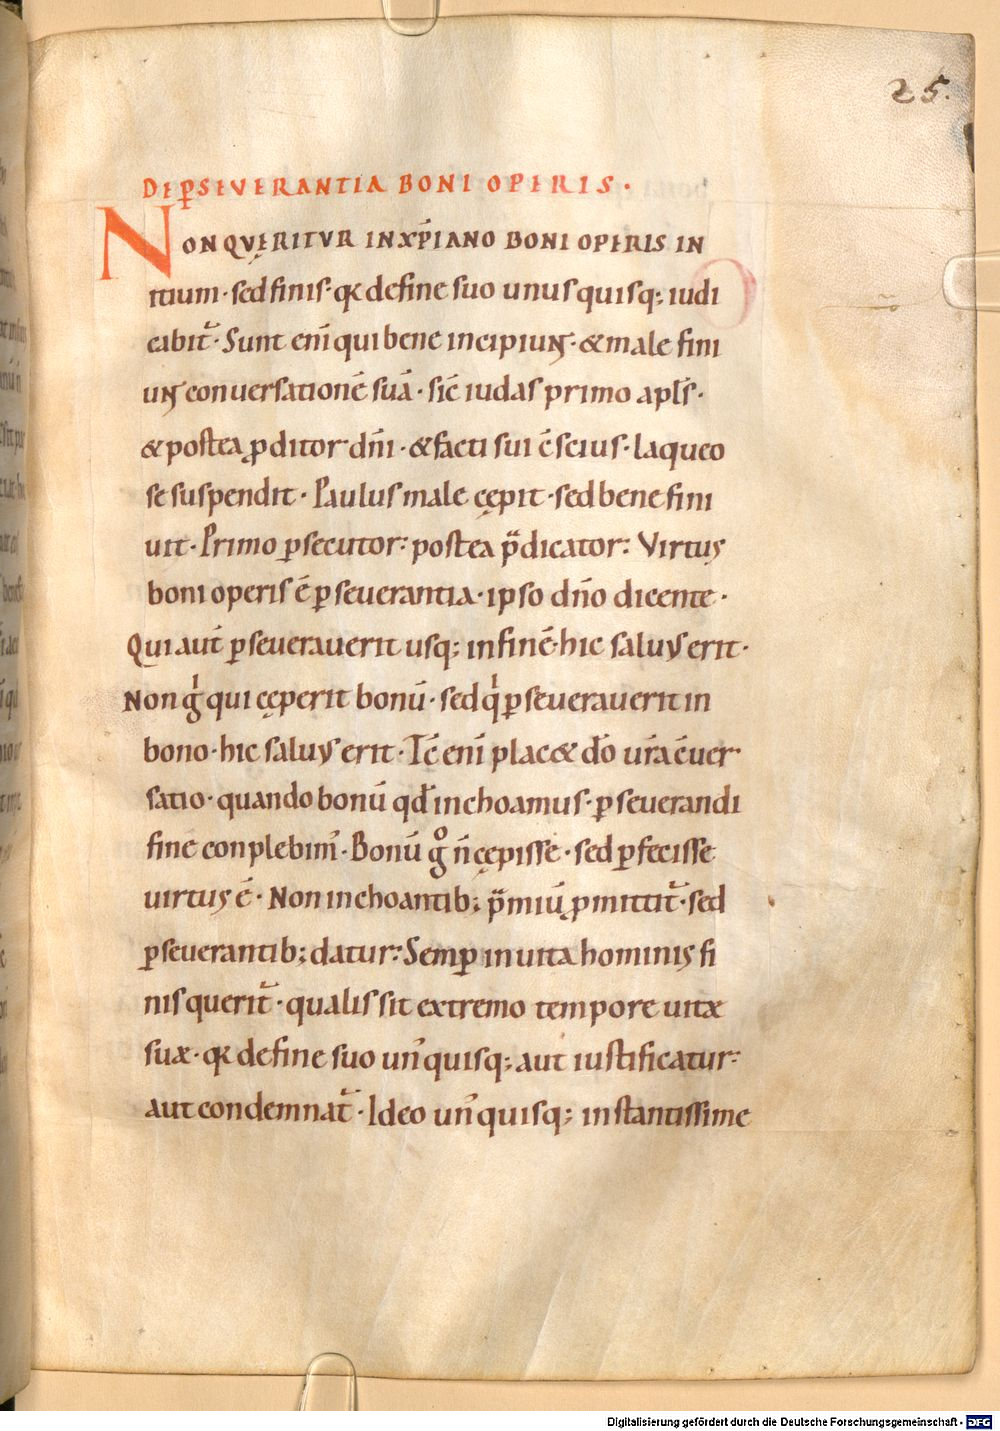 25.
DE P̲SEVERANTIA BONI OPERIS·
NON QVĘRITVR IN XP̄IANO BONI OPERIS IN
itium· sed finis· qꝛ de fine suo unusquisq; iudi
cabit᷑· Sunt eni̅ qui bene incipiuɴt· & male fini
uɴt conuersatione̅ sua̅· sic̅ iudas primo apl̅s·
& postea ꝓditor dn̅i· & facti sui c̅scius· laqueo
se suspendit· Paulus male cępit· sed bene fini
uit· Primo ꝑsecutor: postea p̅dicator: Virtus
boni operis e̅ ꝑseuerantia· ipso dn̅o dicente·
Qui aut̅ ꝑseuerauerit usq; in fine̅· hic saluus erit·
Non gͥ qui cęperit bonu̅· sed qͥ ꝑseuerauerit in
bono· hic saluus erit· Tc̅ eni̅ plac& do̅ ur̅a c̅uer
satio· quando bonu̅ qd̅ inchoamus· ꝑseuerandi
fine conplebim᷒· Bonu̅ gͦ n̅ cępisse· sed ꝑfecisse
virtus e̅· Non inchoantib; p̅miu̅ ꝓmittit᷑· sed
ꝑseuerantib; datur: Semꝑ in uita hominis fi
nis querit᷑· qualis sit extremo tempore uitæ
suæ· qꝛ de fine suo un᷒quisq; aut iustificatur:
aut condemnat᷑· Ideo un᷒quisq; instantissime
Digitalisierung gefördert durch die Deutsche Forschungsgemeinschaft - DFG